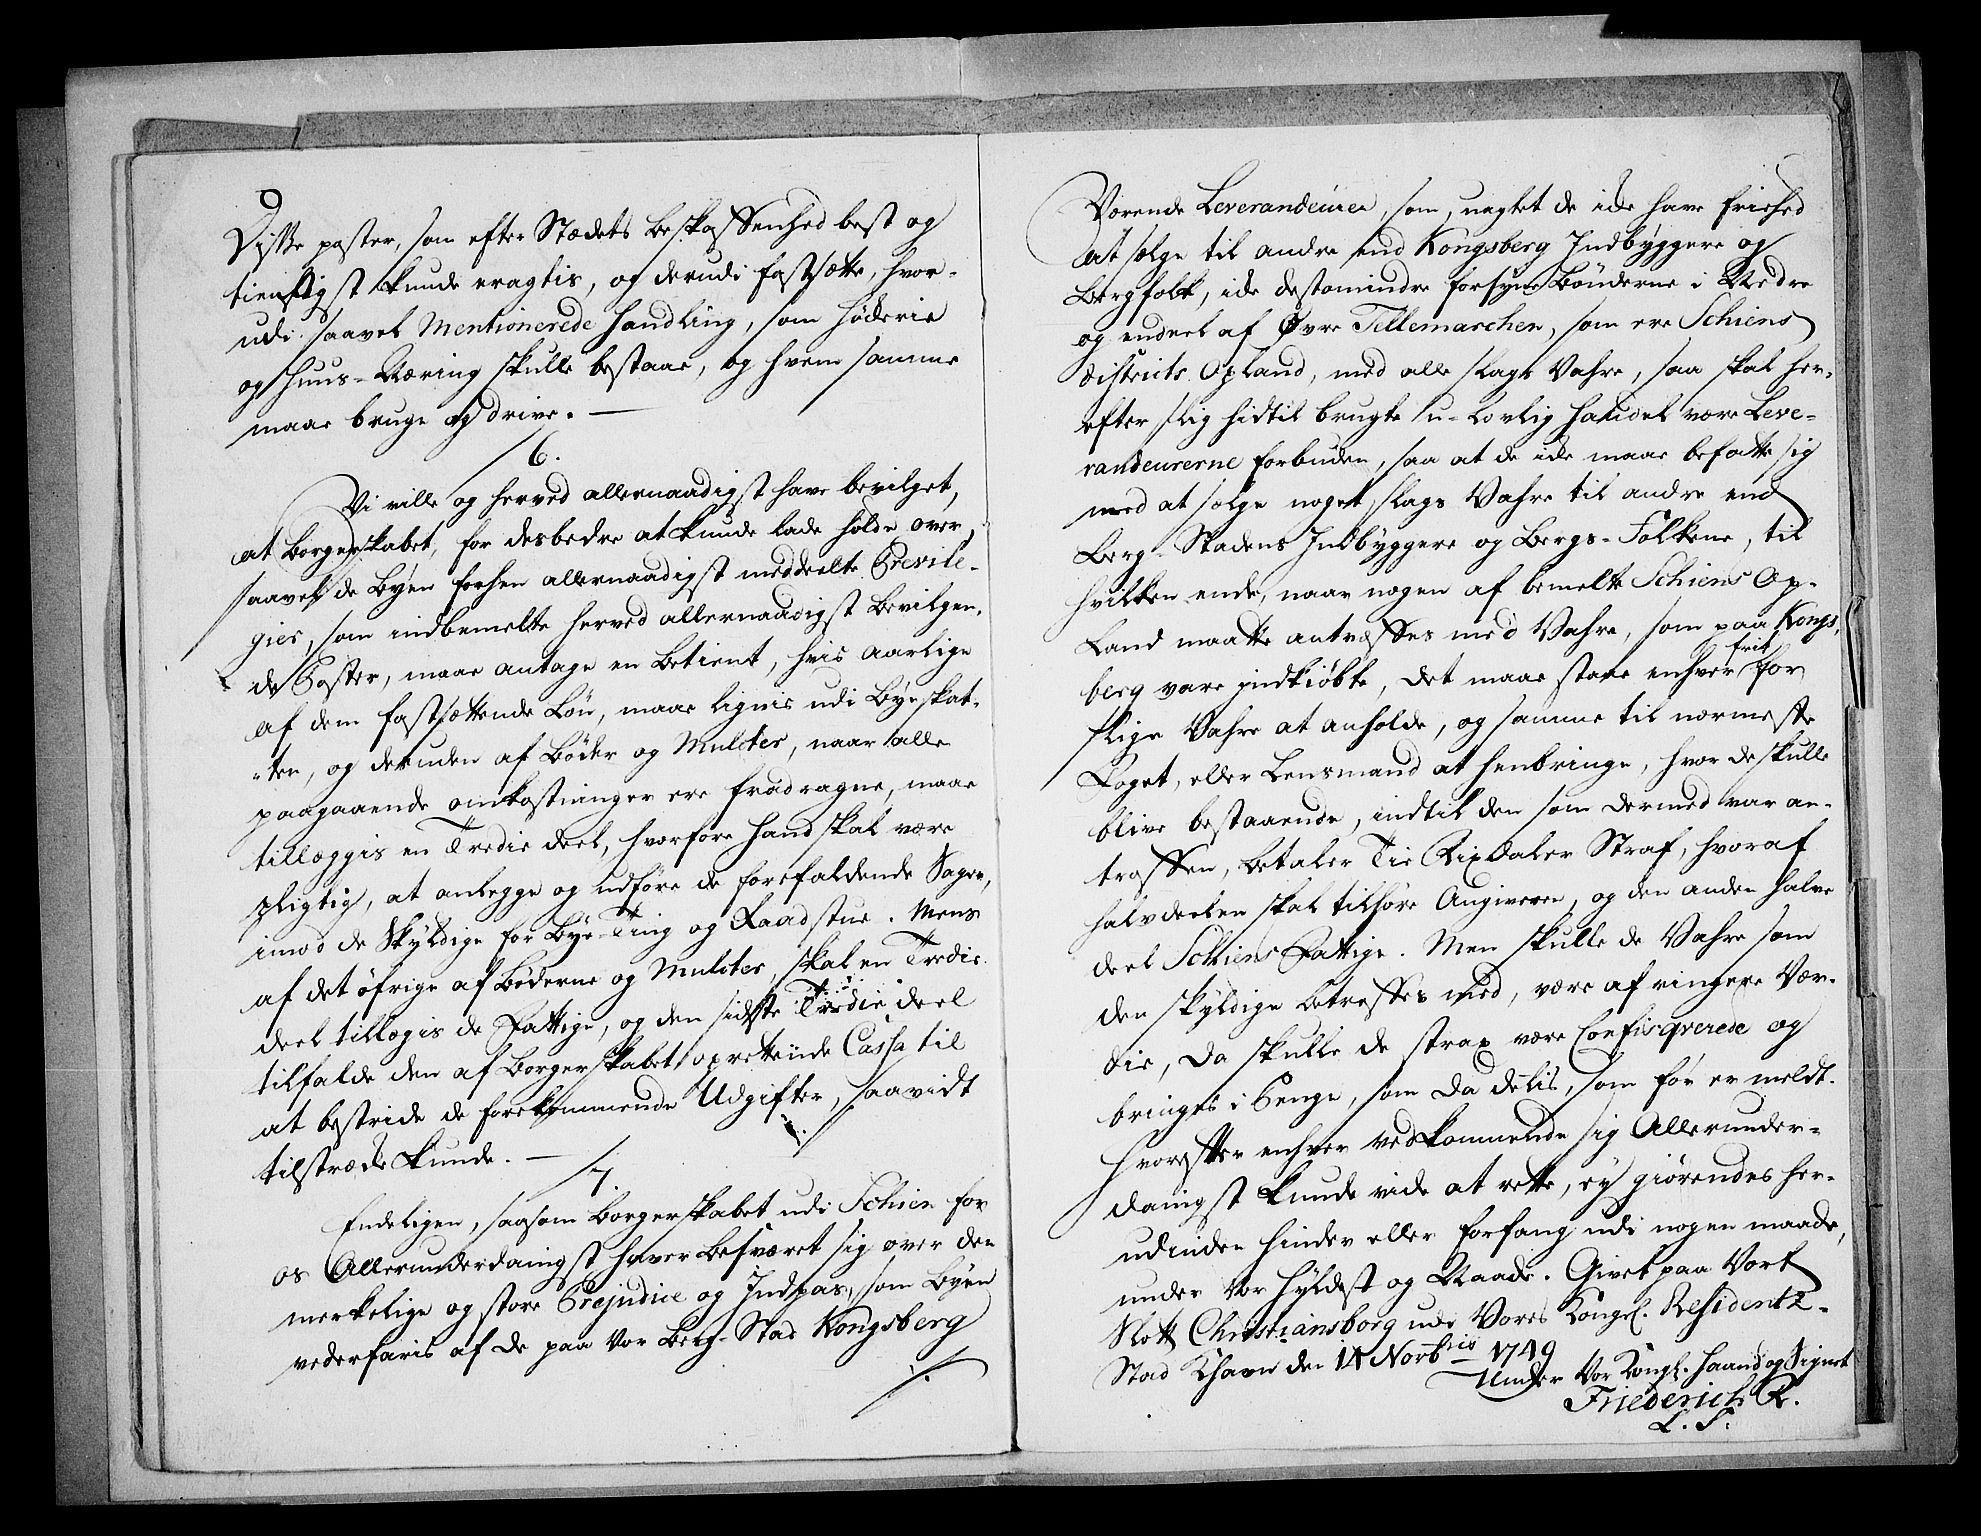 9
Disse poster, som efter Stædets beskaffenhed best og
tienligst kunde eragtis, og derudi fastsætte, hvor-
udi saavel Mentionerede Handling, som Høderie
og Huus-Næring skulle bestaae, og hvem samme
maae bruge og drive. —
6.
Vi ville og herved allernaadigst have bevilget,
at Borgerskabet, for desbedre at kunde lade holde over,
saavel de Byen forhen allernaadigst meddeelte Previle-
gier, som indbemelte herved allernaadigst bevilgen-
de Poster, maae antage en betient, hvis aarlige
af dem fastsættende Løn, maae lignis udi Byeskat-
ten, og desuden af Bøder og Mulcter, naar alle
paagaaende omkostninger ere fradragne, maae
tillæggis en Tredie deel, hvorfore hand skal være
pligtig, at anlegge og udføre de forefaldende Sager,
imod de Skyldige for Bye-Ting og Raadstue. Mens
af det øfrige af Bøderne og Mulcter, skal en Tredie
deel tillægis de Fattige, og den sidste Tredie deel
tilfalde den af Borgerskabet oprettende Cassa til
at bestride de forekommende Udgifter, saavidt
tilstræcke kunde. —
7.
Endeligen, saasom Borgerskabet udi Schien for
os Allerunderdanigst haver besværet sig over den
merkelige og store Prejudice og Indpas, som Byen
vederfaris af de paa vor Berg-Stad Kongsberg
./.
Værende Leverandeurer, som, uagtet de icke have frihed
at sælge til andre end Kongsberg Indbyggere og
Bergfolk, icke destomindre forsyne Bønderne i Nedre
og endeel af Øvre Tellemarchen, som ere Schiens
Districts Opland, med alle slags Vahre, saa skal her-
efter slig hidtil brugte u-lovlig Handel være Leve-
randeurerne forbuden, saa at de icke maae befatte sig
med at sælge noget slags Vahre til andre end
Berg-Stadens Indbyggere og Bergs-Folkene, til
hvilken ende, naar nogen af bemelte Schiens Op-
land maatte antræffes med Vahre, som paa Kongs-
berg vare indkiøbte, det maae staae enhver frit for
slige Vahre at anholde, og samme til nærmeste
Foget, eller Lensmand at henbringe, hvor de skulle
blive bestaaende, indtil den som dermed var an-
troffen, betaler Tie Rixdaler Straf, hvoraf
halvdeelen skal tilhøre Angiveren, og den anden halve
deel Schiens Fattige. Men skulle de Vahre som
den skyldige betreffes med, være af ringere Vær-
die, da skulle de strax være Confisqverede og
bringes i Penge, som da delis, som før er meldt.
Hvorefter enhver vedkommende sig Allerunder-
danigst kunde vide at rette, ey giørendes her-
udinden hinder eller forfang udi nogen maade,
under vor hyldest og Naade. Givet paa Vort
Slott Christiansborg udi Vores Kongel. Residentz-
Stad Khavn den 14 Novbris 1749
Under Vor Kongl. Haand og Signet
Friederich R.
L. S.